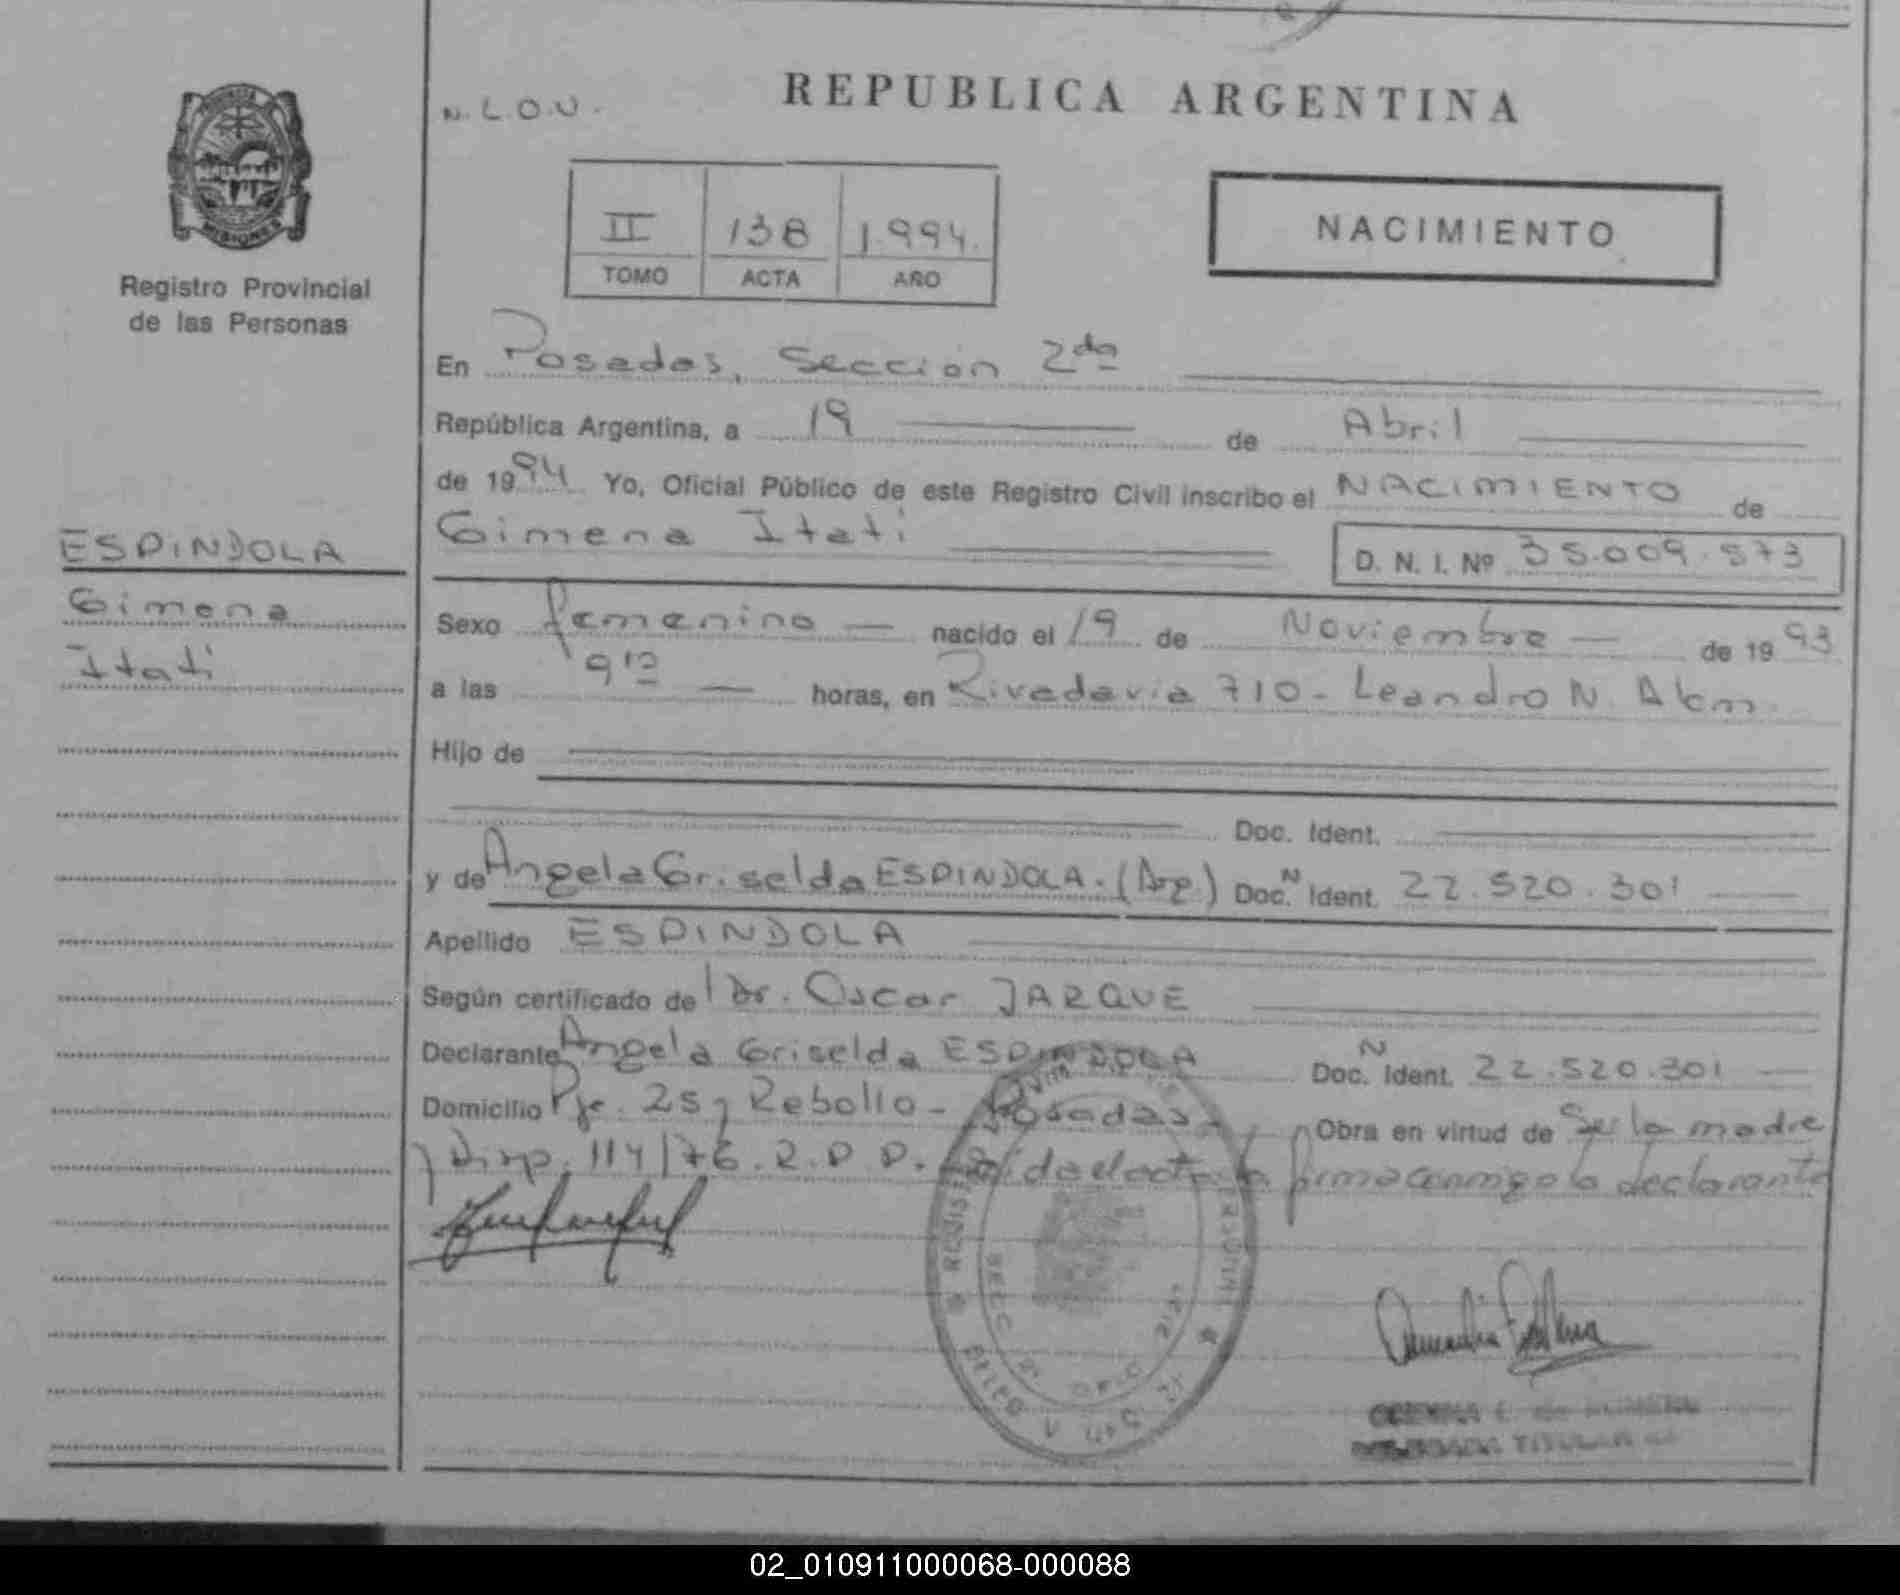 REPUBLICA ARGENTINA
N.L.O.U.
MISIONES
Registro Provincial
de las Personas
II 138 1.994.
TOMO ACTA AÑO
NACIMIENTO
En Posadas, Sección 2da
República Argentina, a 19 de Abril
de 1994 Yo, Oficial Público de este Registro Civil inscribo el NACIMIENTO de
Gimena Itati
D. N. I. Nº 35.009.573
ESPINDOLA
Gimena
Itati
Sexo femenino nacido el 19 de Noviembre de 1993
a las 9 12 horas, en Rivadavia 710 - Leandro N. Alem
Hijo de
Doc. Ident.
y de Angela Griselda ESPINDOLA. (Arg.) Doc. N Ident. 22.520.301
Apellido ESPINDOLA
Según certificado de Dr. Oscar JARQUE
Declarante Angela Griselda ESPINDOLA Doc. N Ident. 22.520.301
Domicilio Pje. 25 y Rebollo - Posadas Obra en virtud de Ser la madre
y Disp. 114/76. R.P.P. leída el acta la firma conmigo la declarante
SECC 2a
TITULAR
02_010911000068-000088